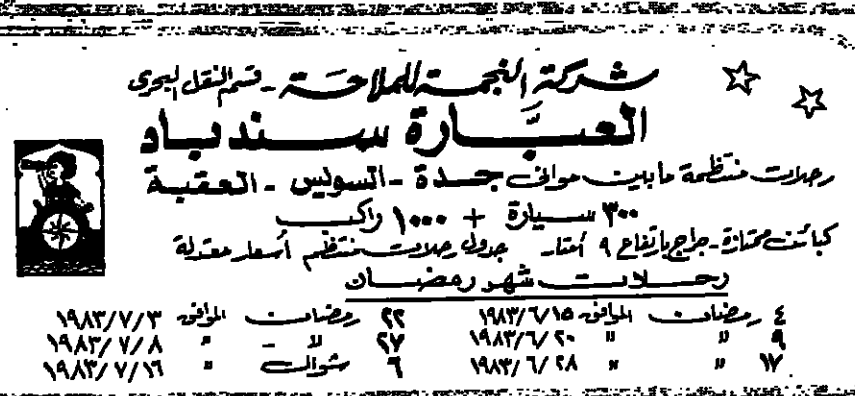 شركة النجمة للملاحة - قسم النقل البحرى
العبَّارة سندباد
رحلات منتظمة مابين موانى جدة - السويس - العقبة
٣٠٠ سيارة + ١٠٠٠ راكب
كبائن ممتازة - جراج بارتفاع ٩ أمتار - جدول رحلات منتظم أسعار معتدلة
رحلات شهر رمضان
٤ رمضان الموافق ١٩٨٣/٦/١٥ ٢٢ رمضان الموافق ١٩٨٣/٧/٣
٩ " " ١٩٨٣/٦/٢٠ ٢٧ " - " ١٩٨٣/٧/٨
١٧ " " ١٩٨٣/٦/٢٨ ٦ شوال " ١٩٨٣/٧/١٦